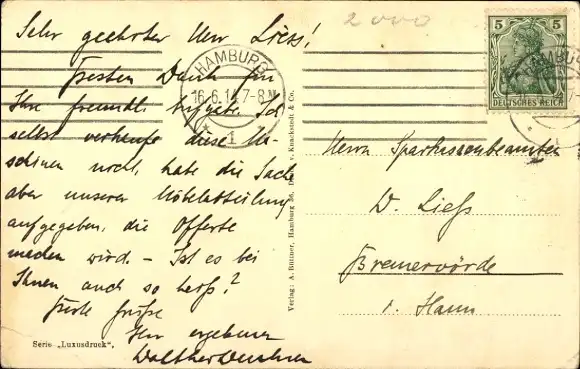 2000
Sehr geehrter Herr Liess!
Besten Dank für
Ihre freundl. Aufgabe. Ich
selbst verkaufe diese Ma-
schinen nicht, habe die Sache
aber unserer Möbelabteilung
aufgegeben, die Offerte
machen wird. – Ist es bei
Ihnen auch so heiß?
Beste Grüße
Ihr ergebener
Walther
Serie „Luxusdruck",
Verlag: A. Büttner, Hamburg 36, Druck v. Knackstedt & Co.
HAMBURG
16.6.14.7-8N
1
5 5
DEUTSCHES REICH
HAMBURG
Herrn Sparkassenbeamten
W. Liess
Bremervörde
i. Hann